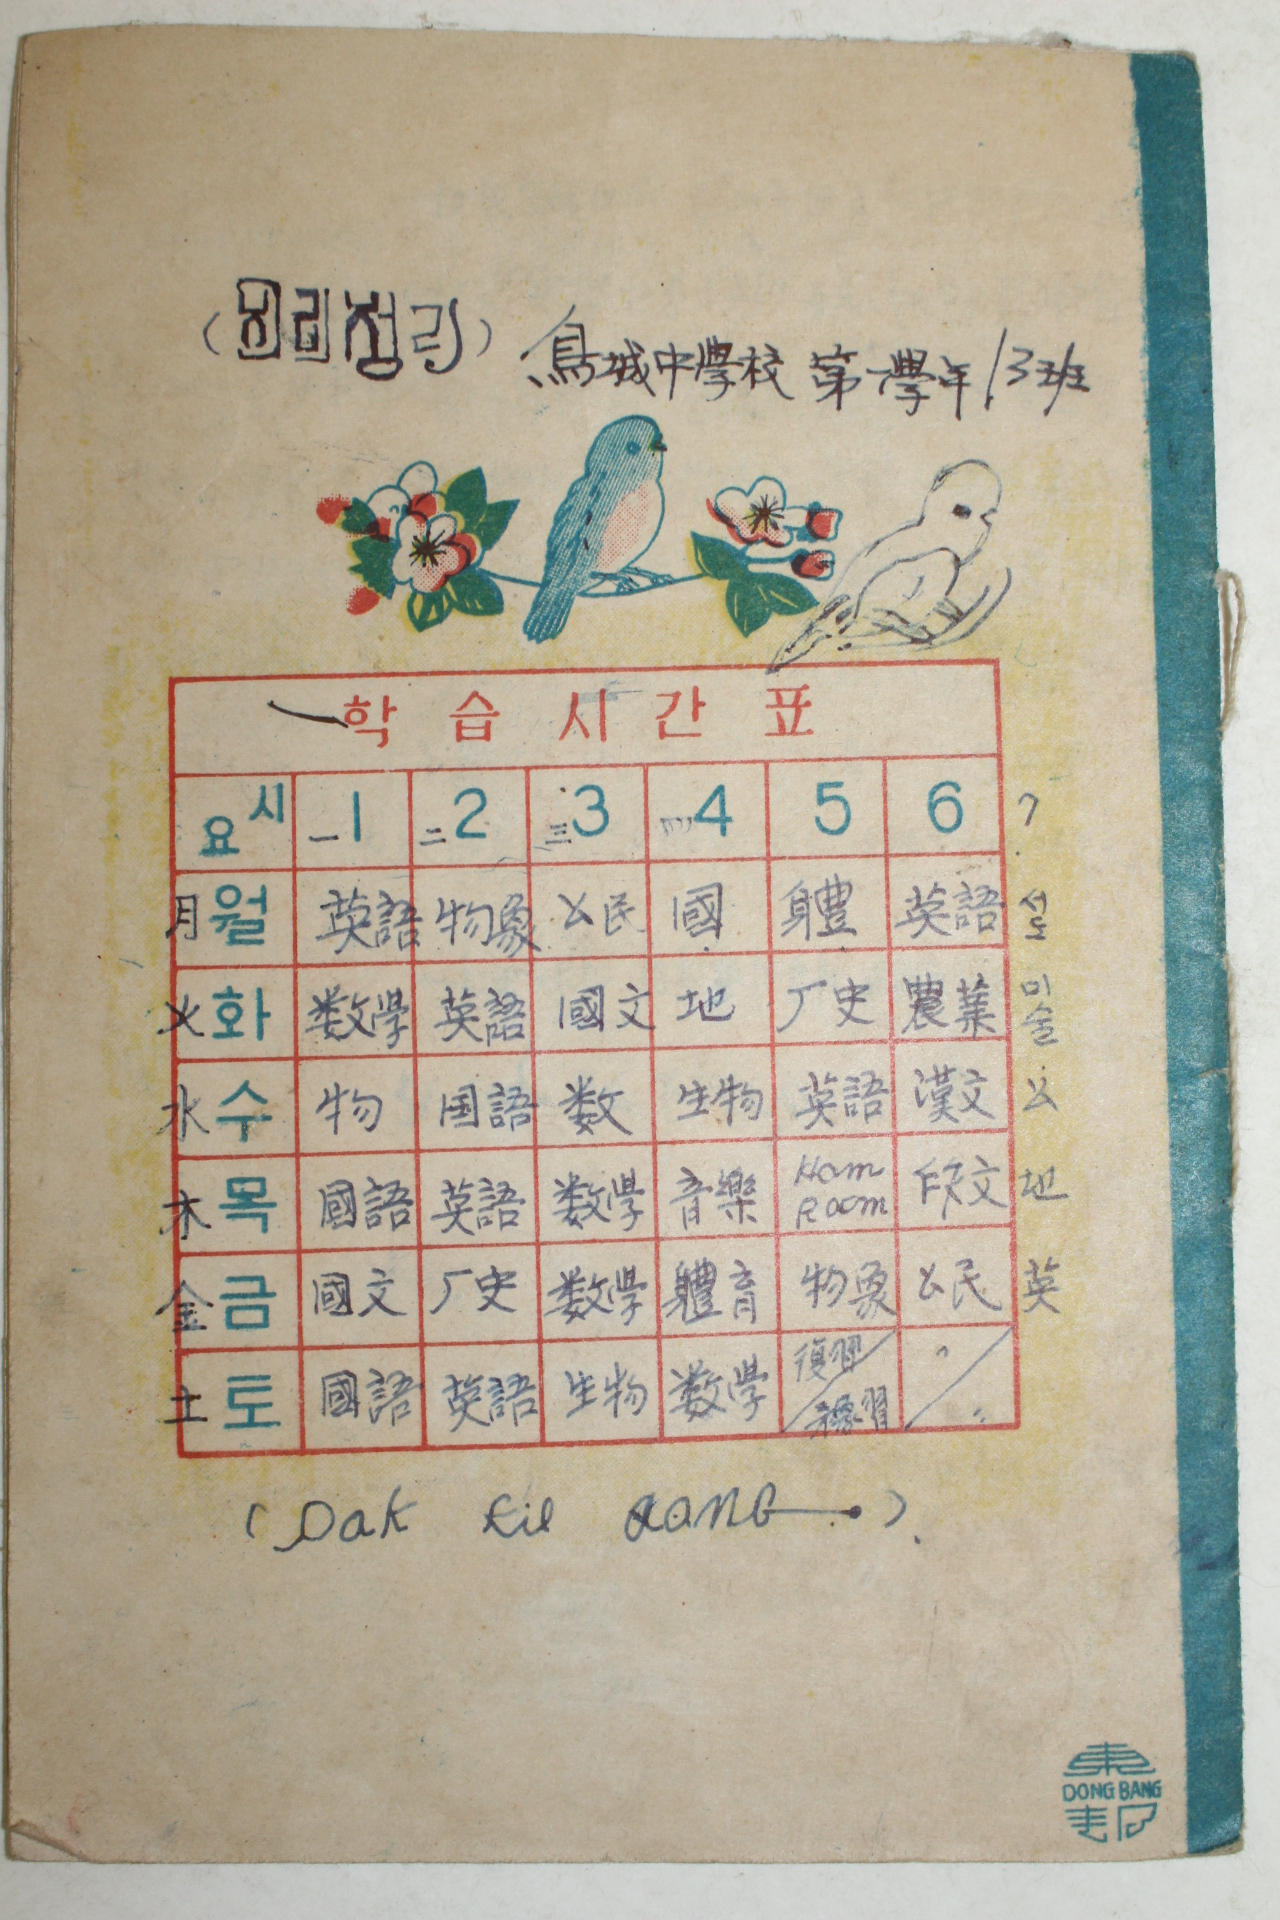 烏城中學校 第一學年 13班
학습시간표
시 요 一1 二2 三3 4 5 6 7
月 월 英語 物象 公民 國 體 英語 선도
火 화 数學 英語 國文 地 厂史 農業 미술
水 수 物 国語 数 生物 英語 漢文 公
木 목 國語 英語 数學 音樂 Hom Room 作文 地
金 금 國文 厂史 数學 體育 物象 公民 英
土 토 國語 英語 生物 数學 復習 練習
DONG BANG